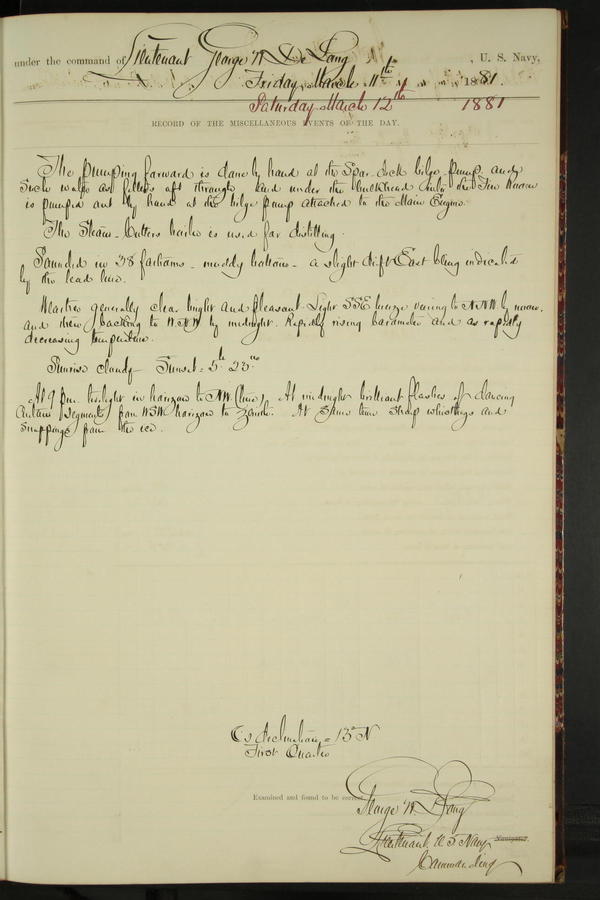 under the command of Lieutenant George W De Long, U. S. Navy,
Friday, March 11th 1881.
Saturday March 12th 1881
RECORD OF THE MISCELLANEOUS EVENTS OF THE DAY.
The pumping forward is done by hand at the Spar-deck bilge pump, and
Such water as filters aft through and under the bulkhead into the Fire Room
is pumped out by hand at the bilge pump attached to the Main Engine.
The Steam-Cutters boiler is used for distilling.
Sounded in 38 fathoms - muddy bottom - a slight drift East being indicated
by the lead line.
Weather generally clear bright and pleasant. Light SSE breeze veering to NNW by noon,
and then backing to WNW by midnight. Rapidly rising barometer and as rapidly
decreasing temperature.
Sunrise cloudy - Sunset = 5h 23m
At 9 pm. twilight in horizon to NW (true). At midnight brilliant flashes of dancing
Auroral Segments from WSW horizon to Zenith. At Same time Sharp whistlings and
Snappings from the ice.
Cs declination = 13° N
First Quarter
Examined and found to be correct.
George W. De Long
Lieutenant, U S Navy Navigator.
Commanding